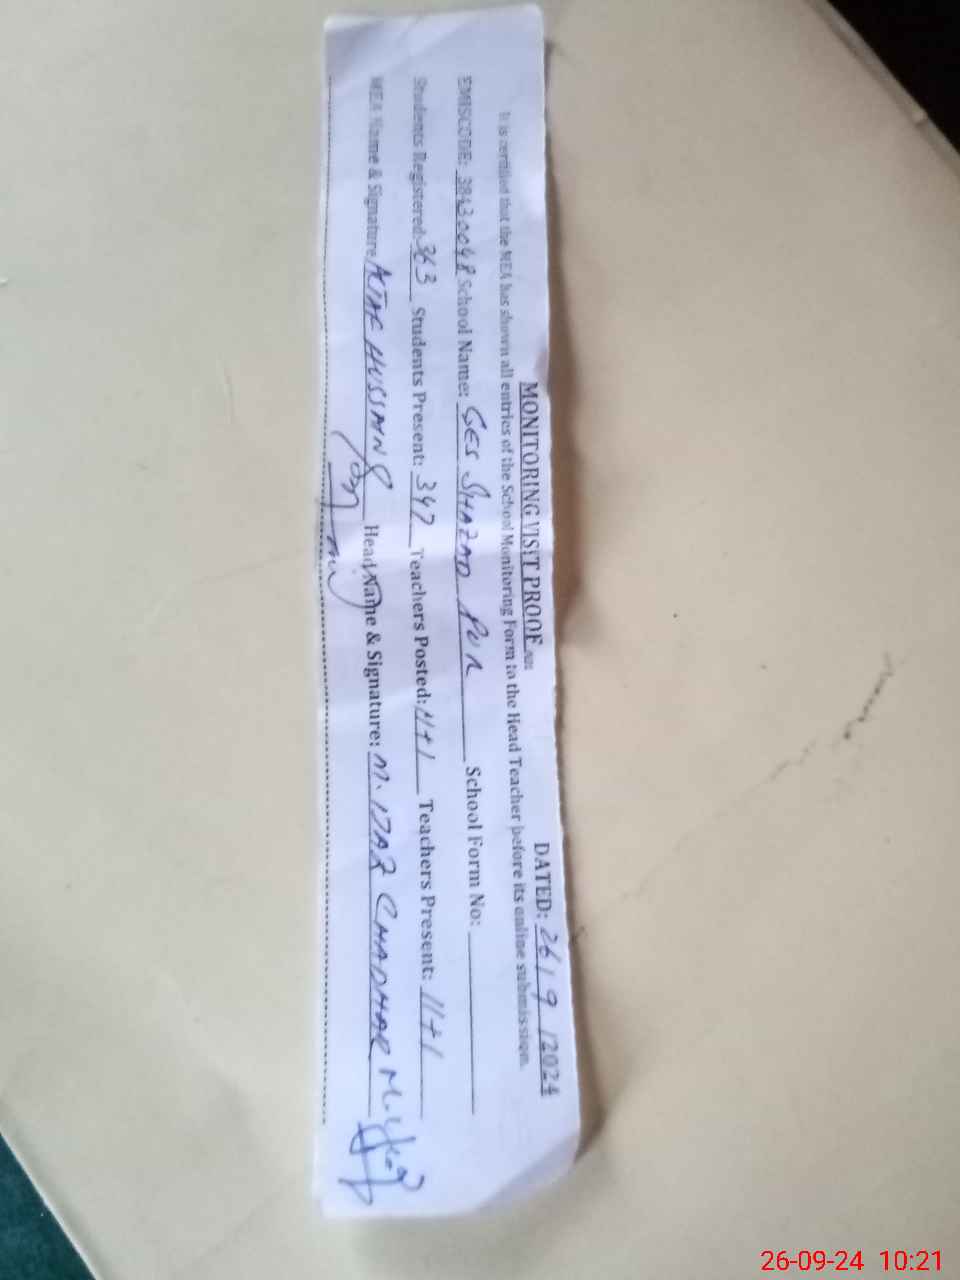 MONITORING VISIT PROOF
DATED: 26/9/2024
It is certified that the MEA has shown all entries of the School Monitoring Form to the Head Teacher before its online submission.
EMISCODE: 38430048 School Name: GES SHAZAD PUR School Form No:
Students Registered: 363 Students Present: 347 Teachers Posted: 11+1 Teachers Present: 11+1
MEA Name & Signature HUSSAIN Head Name & Signature: M. IJAZ CHADHAR
26-09-24 10:21